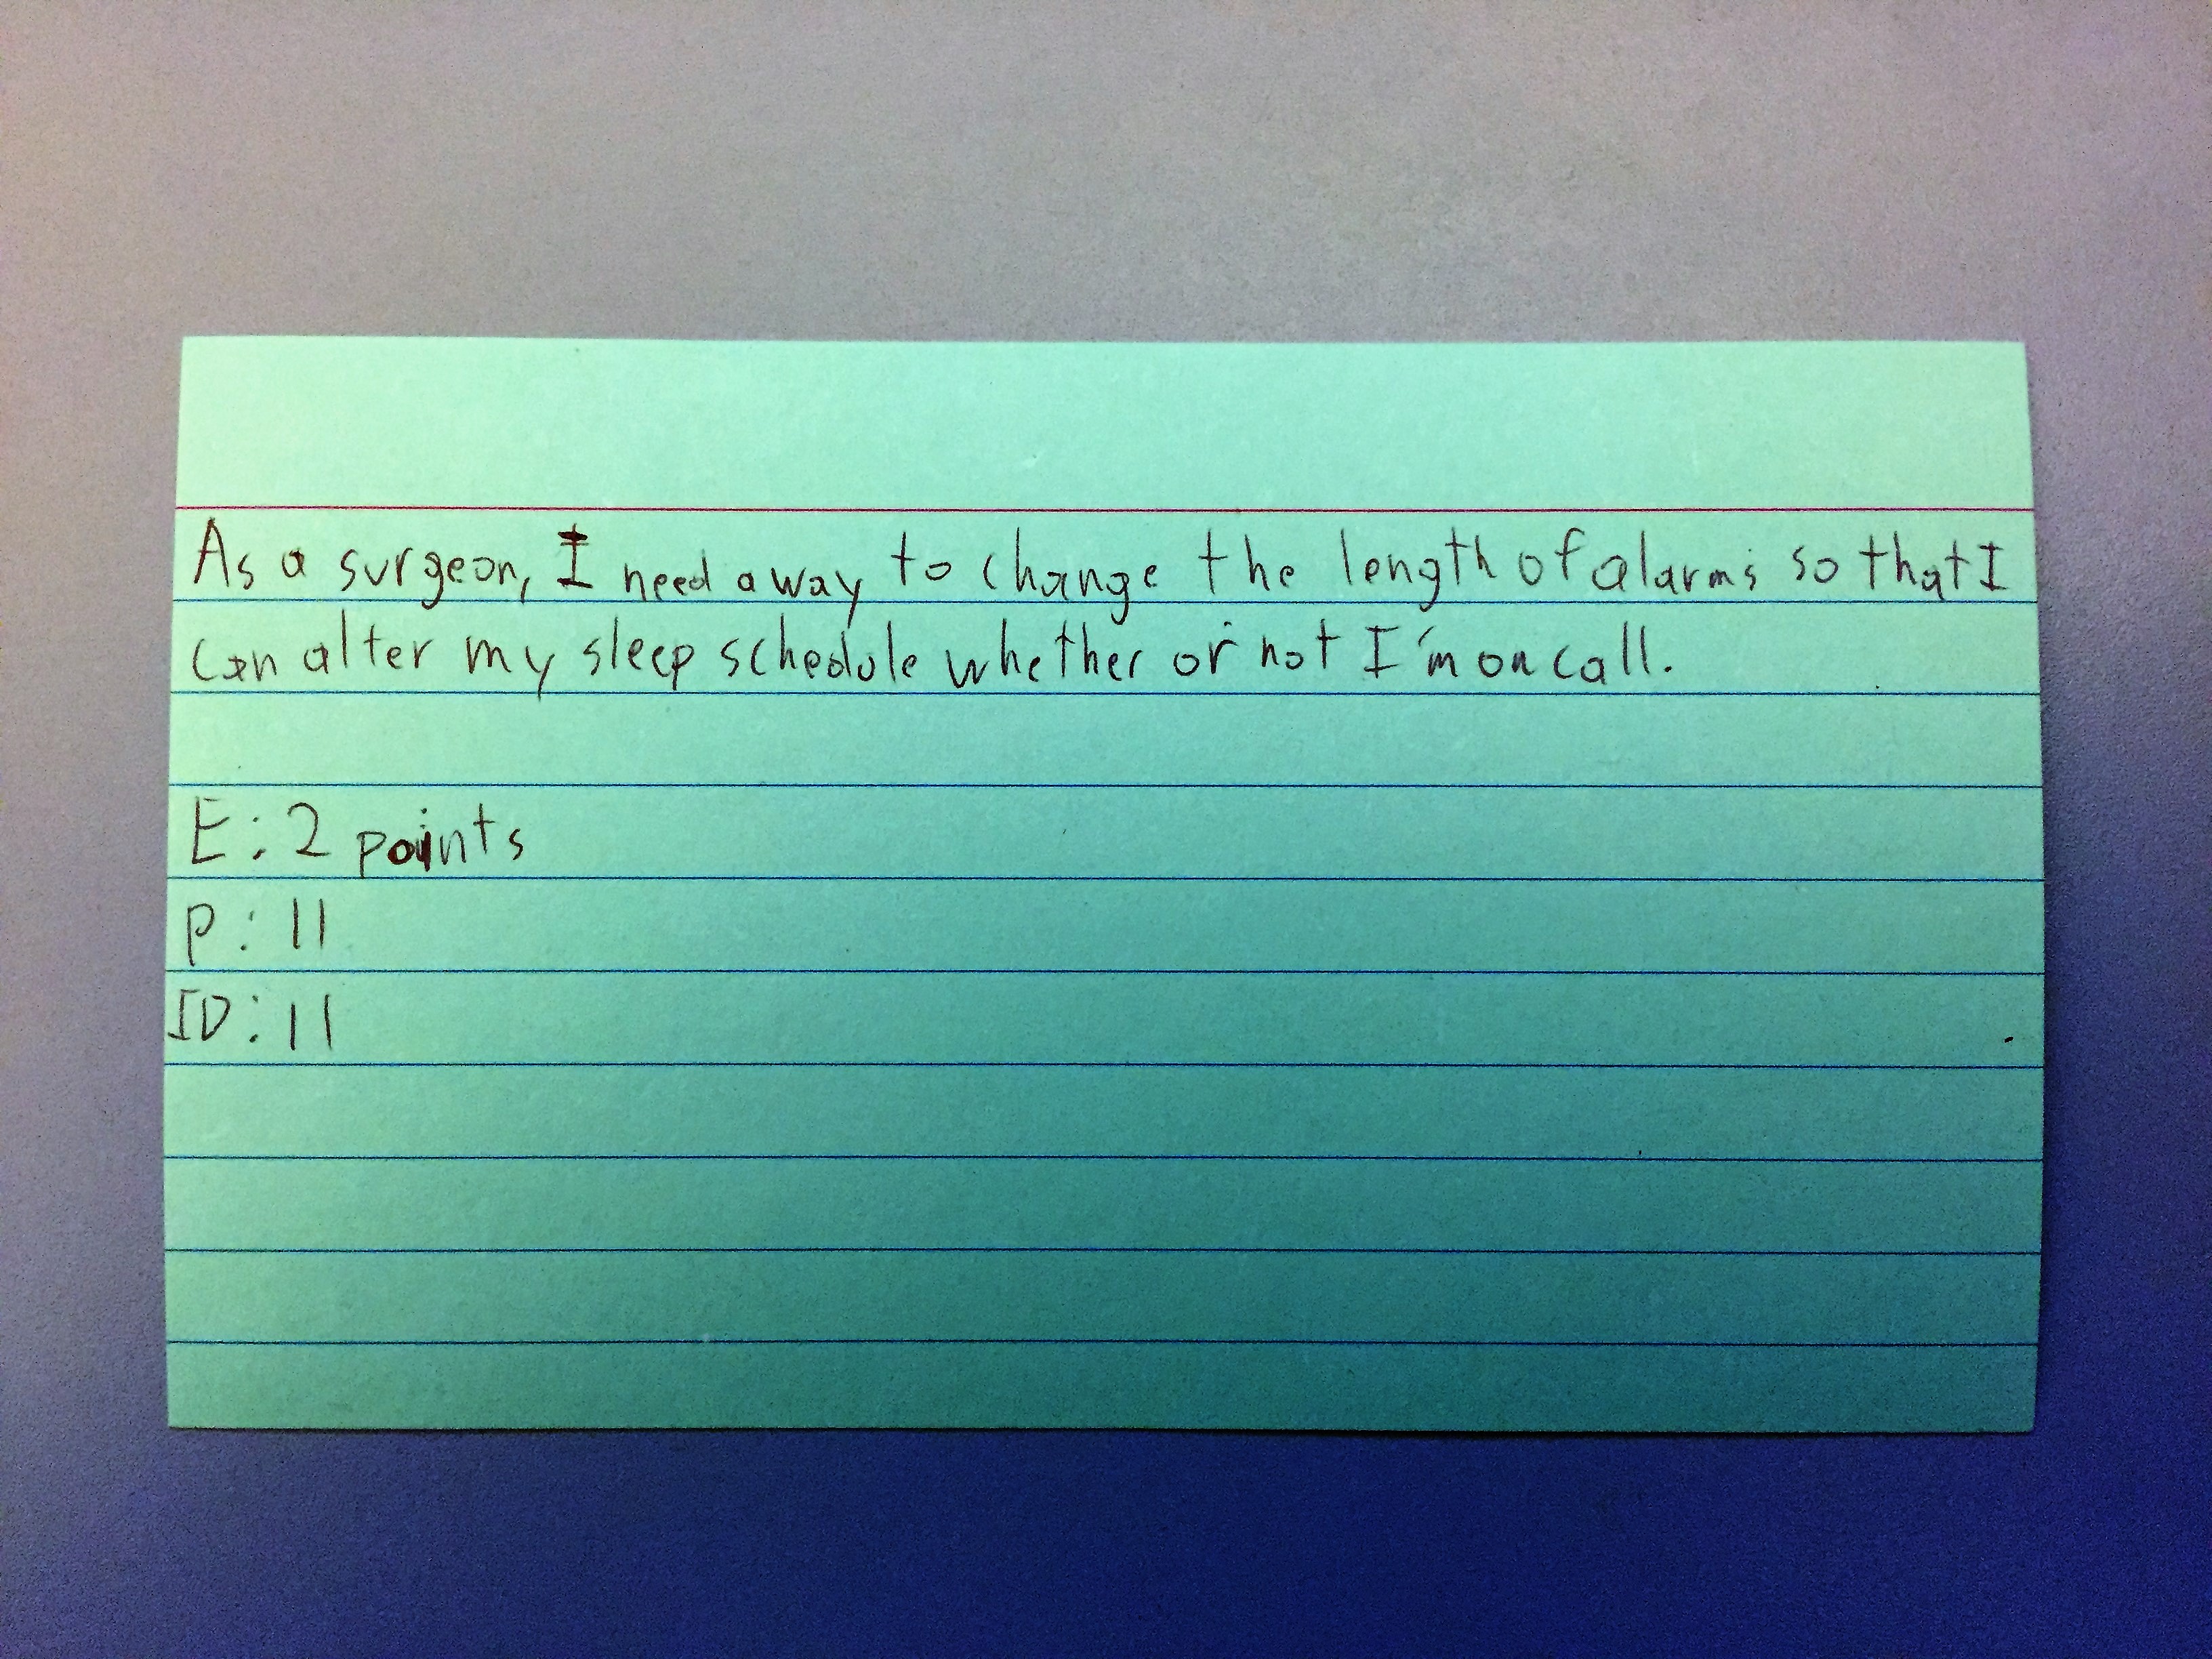 As a surgeon, I need a way to change the length of alarms so that I
can alter my sleep schedule whether or not I'm on call.
E: 2 points
P: 11
ID: 11